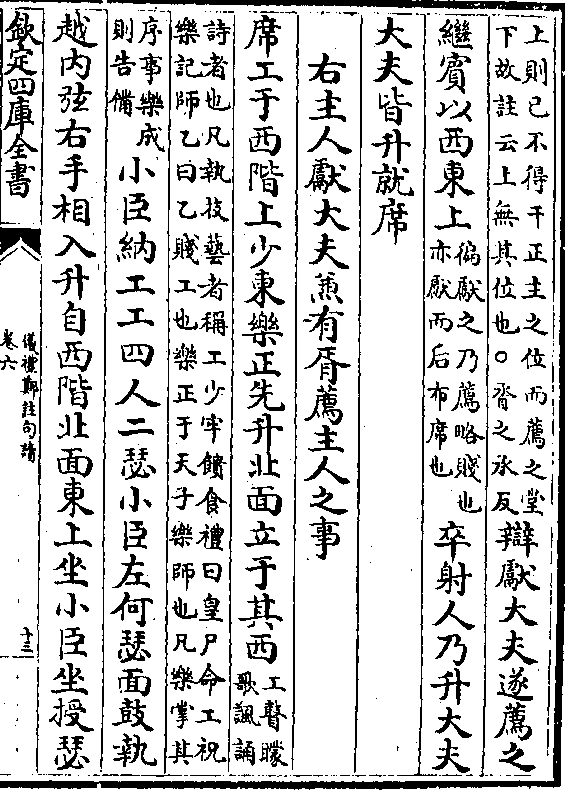 上則已不得干正主之位而薦之堂
下故註云上無其位也○胥之承反
辯獻大夫遂薦之
繼賓以西東上
徧獻之乃薦略賤也
亦獻而后布席也
卒射人乃升大夫
大夫皆升就席
右主人獻大夫兼有胥薦主人之事
席工于西階上少東樂正先升北面立于其西
工瞽矇
歌諷誦
詩者也凡執技藝者稱工少牢饋食禮曰皇尸命工祝
樂記師乙曰乙賤工也樂正于天子樂師也凡樂掌其
序事樂成
則告備
小臣納工工四人二瑟小臣左何瑟面鼓執
越內弦右手相入升自西階北面東上坐小臣坐授瑟
欽定四庫全書
儀禮鄭註句讀
卷六
十三